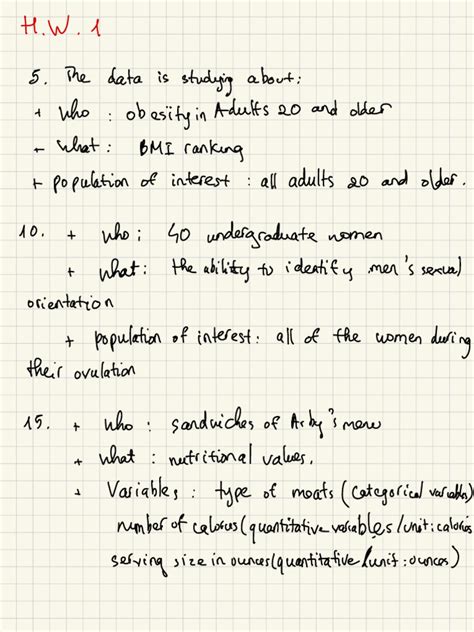 H.W.1
5. The data is studyig about:
+ Who : obesity in Adults 20 and older
+ What : BMI ranking
+ population of interest : all adults 20 and older.
10. + Who : 40 undergraduate women
+ What : the ability to identify men's sexual
orientation
+ population of interest : all of the women during
their ovulation
15. + Who : sandwiches of Arby's menu
+ What : nutritional values.
+ Variables : type of meats (categorical variables)
number of calories (quantitative variables/unit: calories
serving size in ounces (quantitative/unit : ounces)